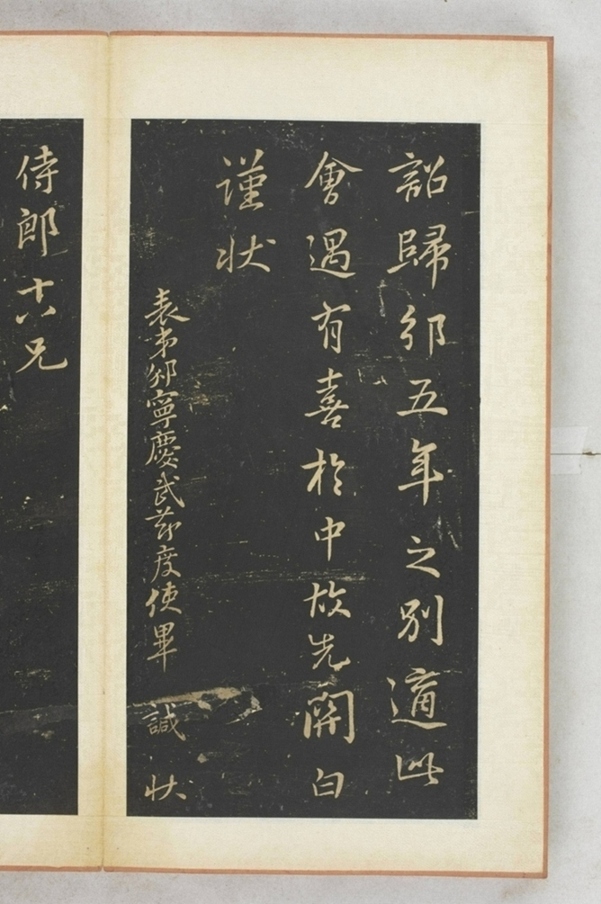 詔歸邠五年之別適此
會遇有喜於中故先開白
謹状
表弟邠寧慶武節度使畢 諴 状
侍郎十八兄